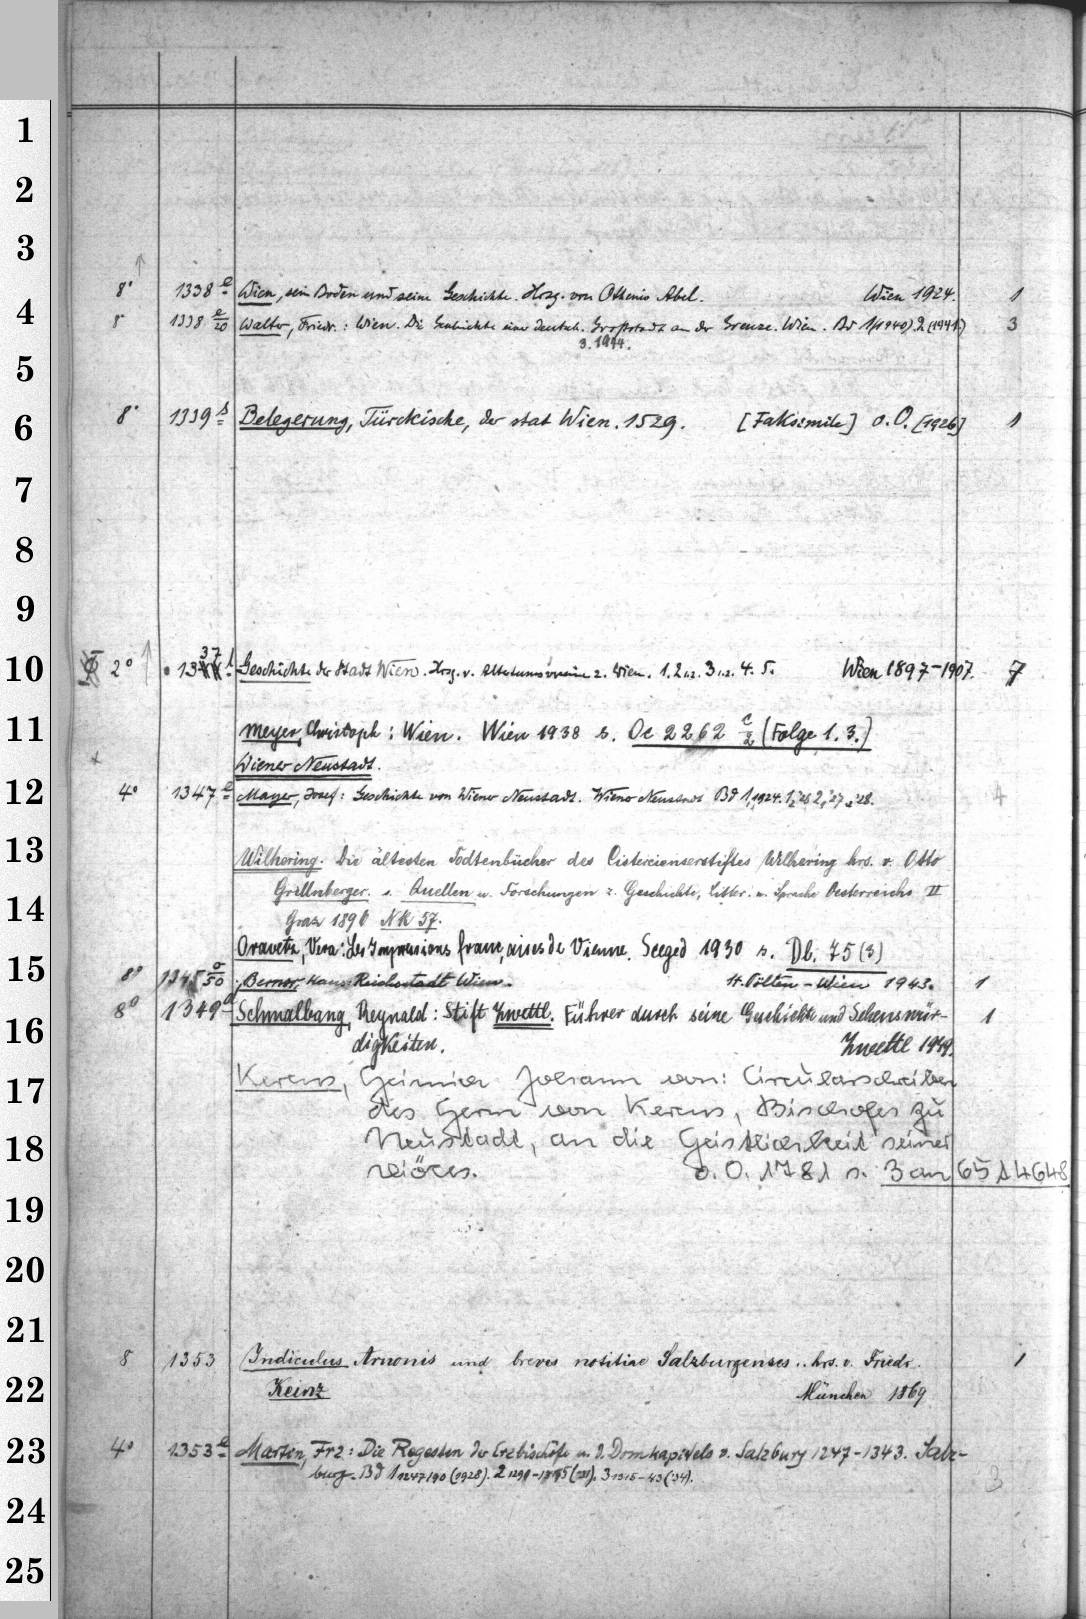 1
2
3
8° 1338 e Wien, sein Boden und seine Geschichte. Hrsg. von Othenio Abel. Wien 1924. 1
4
8° 1338 e/20 Walter, Friedr.: Wien. Die Geschichte einer deutsch. Großstadt an der Grenze. Wien. Bd 1(1940). 2 (1941.) 3
3. 1944.
5
6
8° 1339 s Belegerung, Türckische, der stat Wien. 1529. [Faksimile] o.O. [1926] 1
7
8
9
10
2° 1337 Geschichte der Stadt Wien. Hrsg. v. Altertumsvereine z. Wien. 1. 2,1.2. 3,1.2. 4. 5. Wien 1897-1907. 7
11
Meyer, Christoph: Wien. Wien 1938 s. Oe 2262 c/2 (Folge 1. 3.)
Wiener Neustadt.
12
4° 1347 e Mayer, Josef: Geschichte von Wiener Neustadt. Wiener Neustadt Bd 1,1 1924. 1,2 '26 2, '27 '28. 4
13
Wilhering. Die ältesten Todtenbücher des Cistercienserstiftes Wilhering hrs. v. Otto
Grillnberger. s. Quellen u. Forschungen z. Geschichte, Litter. u. Sprache Oesterreichs II
14
Graz 1896 NK 57.
Oravetz, Vera: Les Impressions françaises de Vienne. Szeged 1930 s. Db. 75 (3)
15
8° 1345 o/50 Berner, Hans: Reichsstadt Wien. St. Pölten - Wien 1943. 1
16
8° 1349 d Schmalbang, Reynald: Stift Zwettl. Führer durch seine Geschichte und Sehenswür-
digkeiten. Zwettl 1949. 1
17
Kerens, Heinrich Johann von: Circularschreiben
des Herrn von Kerens, Bischofes zu
18
Neustadt, an die Geistlichkeit seiner
Diözes. o. O. 1781 s. 3 an 65 14648
19
20
21
8 1353 Indiculus Arnonis und breves notitiae Salzburgenses.. hrs. v. Friedr. 1
22
Keinz München 1869
23
4° 1353 e Martin, Frz: Die Regesten der Erzbischöfe u. d. Domkapitels v. Salzburg 1247-1343. Salz-
burg. Bd 1 1247/90 (1928). 2 1290-1315 ('31). 3 1315-43 ('34). 3
24
25